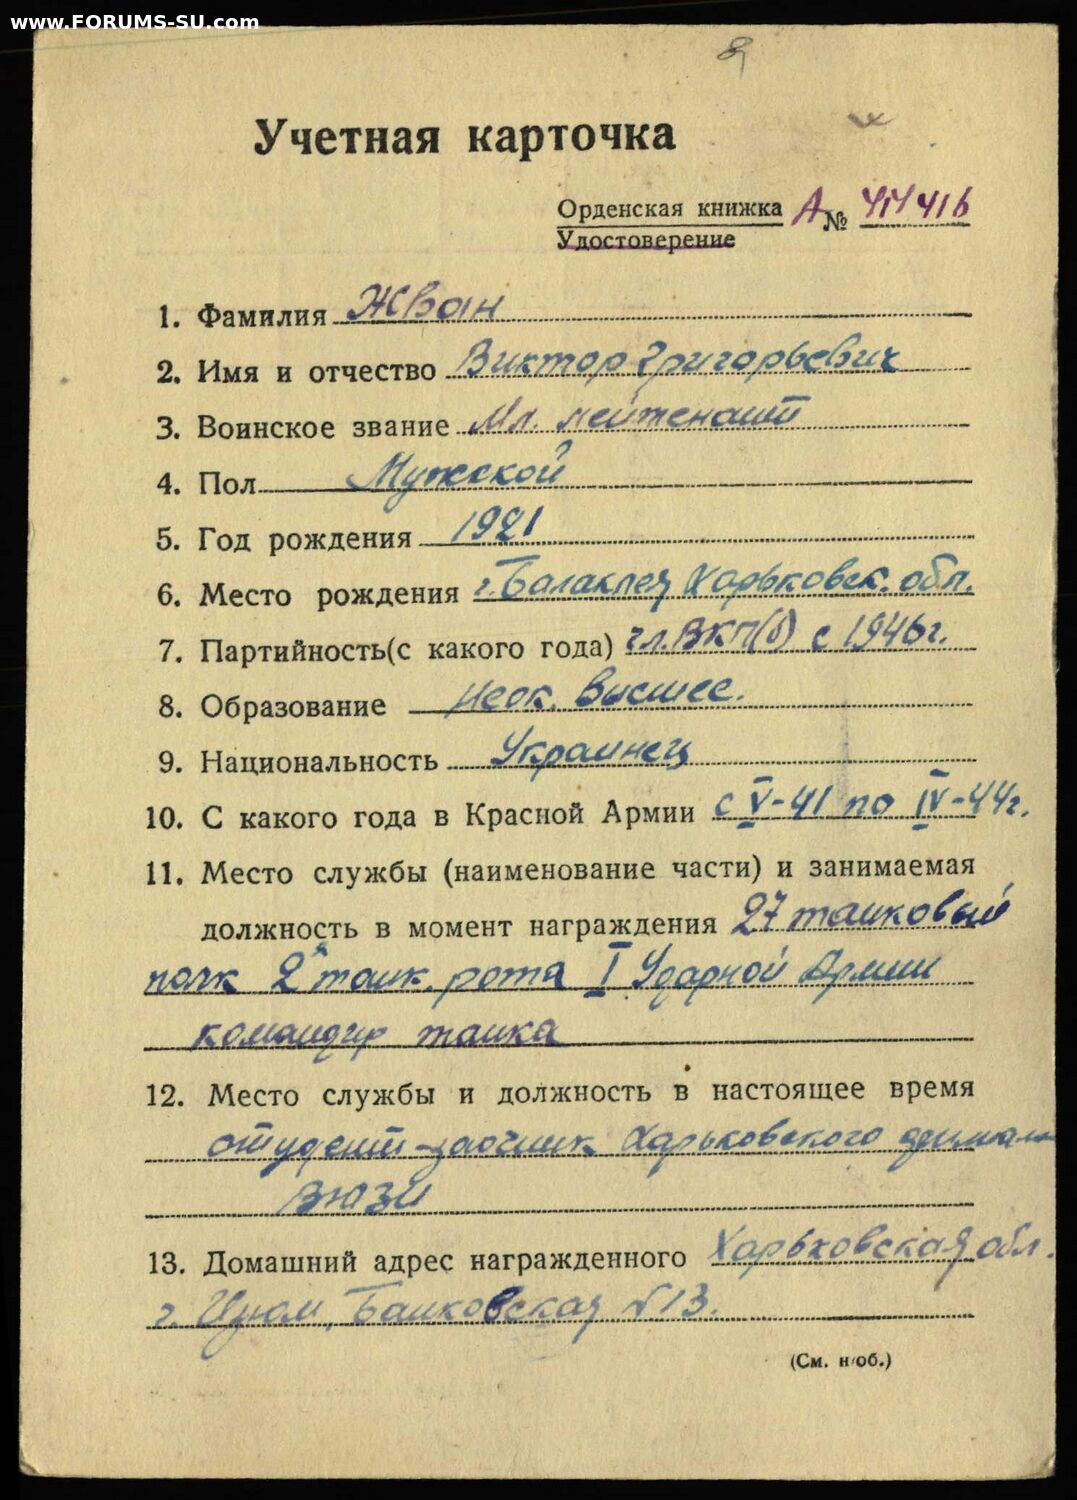 www.FORUMS-SU.com
Учетная карточка
Орденская книжка А №
Удостоверение
1. Фамилия Жван
2. Имя и отчество Виктор Григорьевич
3. Воинское звание Мл. лейтенант
4. Пол Мужской
5. Год рождения 1921
6. Место рождения г. Балаклея Харьковск. обл.
7. Партийность(с какого года) чл. ВКП(б) с 1946г.
8. Образование Неок. высшее.
9. Национальность Украинец
10. С какого года в Красной Армии с V-41 по IV-44г.
11. Место службы (наименование части) и занимаемая
должность в момент награждения 27 танковый
полк 2я танк. рота I Ударной Армии
командир танка
12. Место службы и должность в настоящее время
студент-заочник Харьковского филиала
ВЮЗИ
13. Домашний адрес награжденного Харьковская обл.
г. Изюм, Банковская №13.
(См. н/об.)